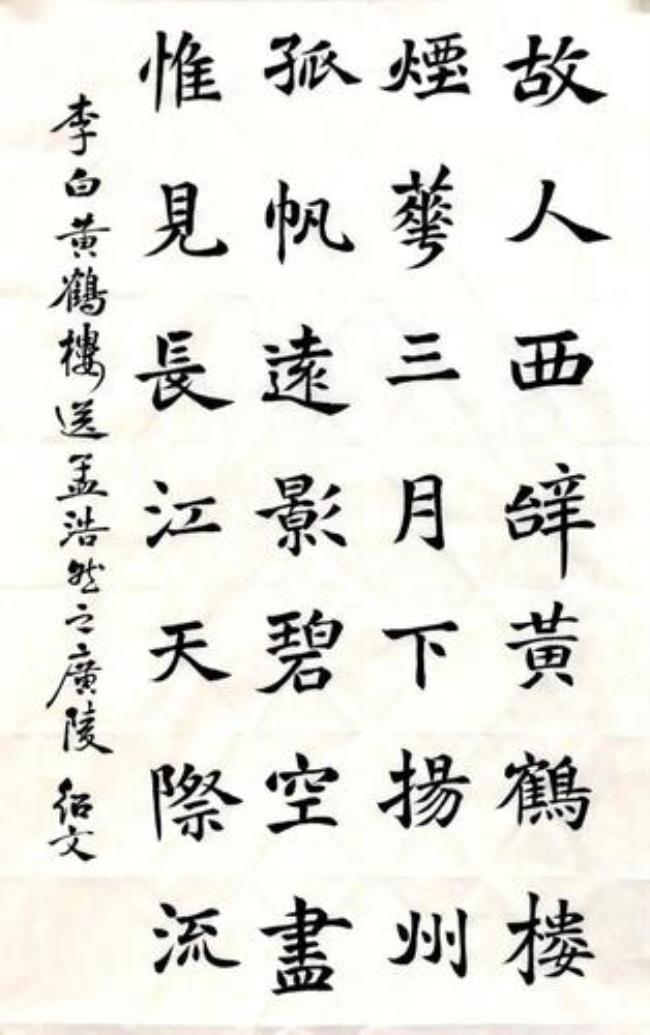 故人西辞黃鶴楼
煙華三月下揚州
孤帆遠影碧空盡
惟見長江天際流
李白黄鶴樓送孟浩然之廣陵 紹文